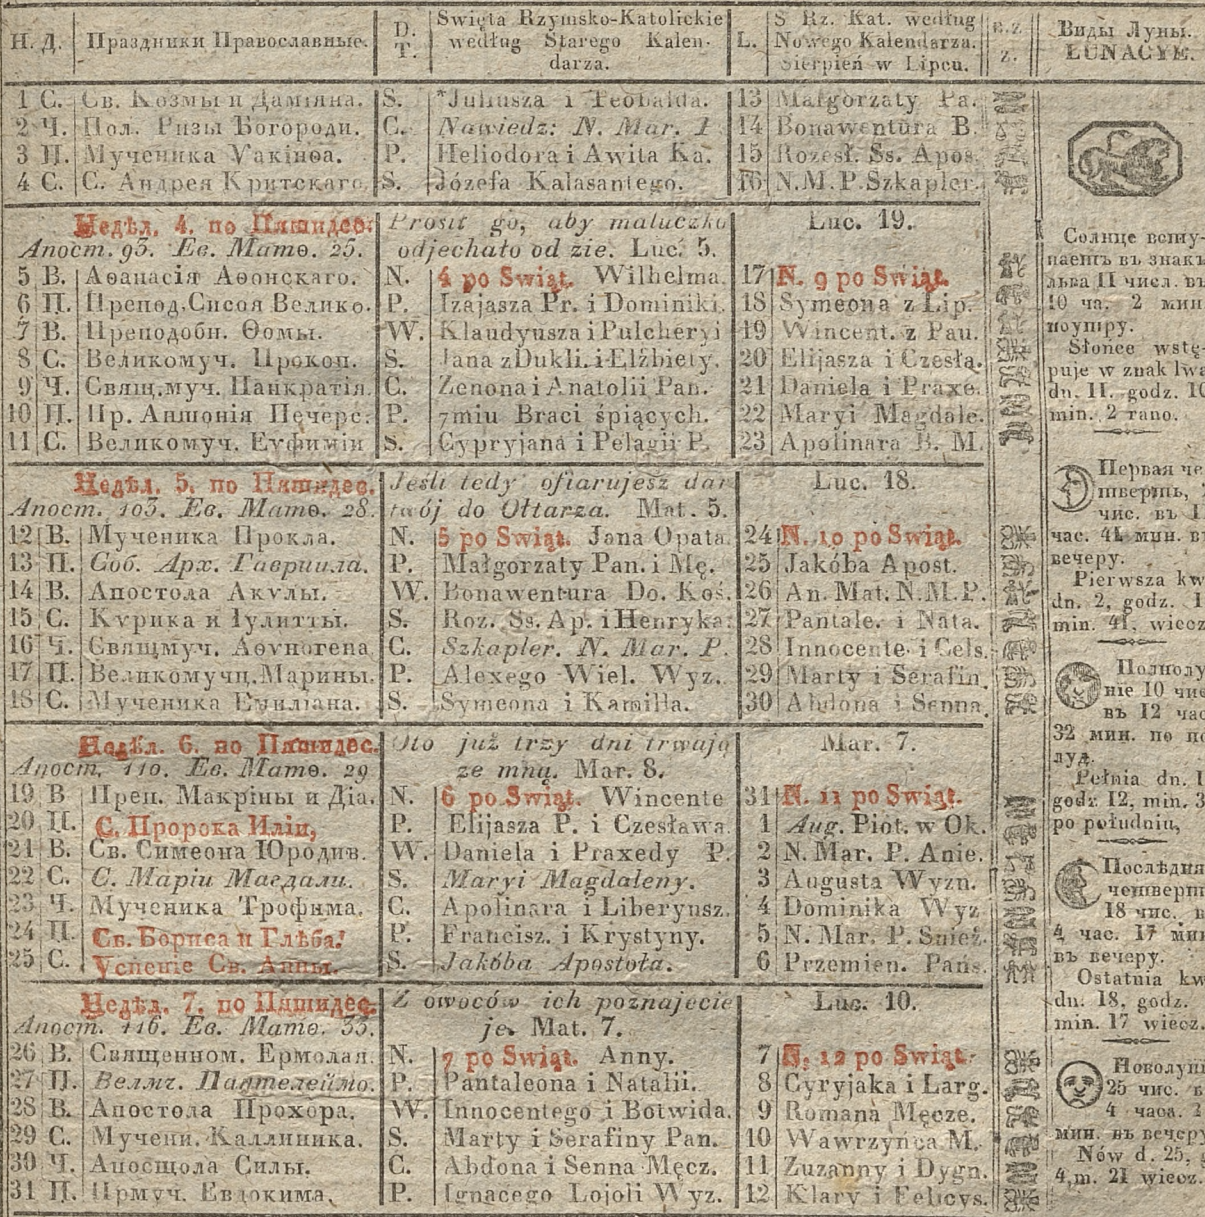 Н. Д. Праздники Православные. D. T. Święta Rzymsko-Katolickie według Starego Kalendarza. L. S Rz. Kat. według Nowego Kalendarza. Sierpień w Lipcu. Виды Луны. ŁUNACYE.
1 С. Св. Козмы и Даміяна. S. *Juliusza i Teobalda. 13 Małgorzaty Pa.
2 Ч. Пол. Ризы Богороди. C. Nawiedz: N. Mar. P 14 Bonawentura B.
3 П. Мученика Уакінѳа. P. Heliodora i Awita Ka. 15 Rozesł. Ss. Apos.
4 С. С. Андрея Критскаго. S. Józefa Kalasantego. 16 N.M.P.Szkapler.
Недѣл. 4. по Пятидес. Prosił go, aby maluczko Luc. 19.
Апост. 93. Ев. Матѳ. 25. odjechało od zie. Luc. 5.
5 В. Аѳанасія Аѳонскаго. N. 4 po Swiąt. Wilhelma. 17 N. 9 po Swiąt.
6 П. Препод.Сисоя Велико. P. Izajasza Pr. i Dominiki. 18 Symeona z Lip.
7 В. Преподобн. Ѳомы. W. Klaudyusza i Pulcheryi 19 Wincent. z Pau.
8 С. Великомуч. Прокоп. S. Jana z Dukli. i Elżbiety. 20 Elijasza i Czesła.
9 Ч. Свящ.муч. Панкратія. C. Zenona i Anatolii Pan. 21 Daniela i Praxe.
10 П. Пр. Антонія Печерс: P. 7miu Braci śpiących. 22 Maryi Magdale.
11 С. Великомуч. Еуфиміи S. Cypryjana i Pelagii P. 23 Apolinara B. M.
Недѣл. 5. по Пятидес. Jeśli tedy ofiarujesz dar Luc. 18.
Апост. 103. Ев. Матѳ. 28. twój do Ołtarza. Mat. 5.
12 В. Мученика Прокла. N. 5 po Swiąt. Jana Opata. 24 N. 10 po Swiąt.
13 П. Соб. Арх. Гавриила. P. Małgorzaty Pan. i Mę. 25 Jakóba Apost.
14 В. Апостола Акулы. W. Bonawentura Do. Koś. 26 An. Mat. N.M.P.
15 С. Курика и Іулитты. S. Roz. Ss. Ap. i Henryka. 27 Pantale. i Nata.
16 Ч. Свящмуч. Аѳуногена C. Szkapler. N. Mar. P. 28 Innocente. i Cels.
17 П. Великомучц.Марины. P. Alexego Wiel. Wyz. 29 Marty i Serafin.
18 С. Мученика Еміліана. S. Symeona i Kamilla. 30 Abdona i Senna.
Недѣл. 6. по Пятидес. Oto już trzy dni trwają Mar. 7.
Апост. 110. Ев. Матѳ. 29 ze mną. Mar. 8.
19 В Преп. Макрины и Діа. N. 6 po Swiąt. Wincente 31 N. 11 po Swiąt.
20 П. С. Пророка Иліи, P. Elijasza P. i Czesława. 1 Aug. Piot. w Ok.
21 В. Св. Симеона Юродив. W. Daniela i Praxedy P. 2 N. Mar. P. Anie.
22 С. С. Маріи Магдали. S. Maryi Magdaleny. 3 Augusta Wyzn.
23 Ч. Мученика Трофима. C. Apolinara i Liberyusz. 4 Dominika Wyz
24 П. Св. Бориса и Глѣба. P. Francisz. i Krystyny. 5 N. Mar. P. Snież.
25 С. Успеніе Св. Анны. S. Jakóba Apostoła. 6 Przemien. Pańs.
Недѣл. 7. по Пятидес. Z owoców ich poznajecie Luc. 10.
Апост. 116. Ев. Матѳ. 33. je. Mat. 7.
26 В. Священном. Ермолая. N. 7 po Swiąt. Anny. 7 N. 12 po Swiąt.
27 П. Велмч. Пантелеймо. P. Pantaleona i Natalii. 8 Cyryjaka i Larg.
28 В. Апостола Прохора. W. Innocentego i Botwida. 9 Romana Męcze.
29 С. Мучени. Каллиника. S. Marty i Serafiny Pan. 10 Wawrzyńca M.
30 Ч. Апостола Силы. C. Abdona i Senna Męcz. 11 Zuzanny i Dygn.
31 П. Прмуч. Евдокима. P. Ignacego Lojoli Wyz. 12 Klary i Felicys.
Солнце всту-
паетъ въ знакъ
льва 11 числ. въ
10 ча. 2 мин
поутру.
Słońce wstę-
puje w znak lwa
dn. 11. godz. 10
min. 2 rano.
Первая че
тверть, 2
чис. въ 1
час. 41 мин. въ
вечеру.
Pierwsza kw
dn. 2, godz. 1
min. 41, wiecz
Полнолу
ніе 10 чис
въ 12 час
32 мин. по по
луд.
Pełnia dn. 1
godz. 12, min. 3
po południu,
Послѣдняя
четверть
18 чис. в
4 час. 17 мин
въ вечеру.
Ostatnia kw
dn. 18, godz.
min. 17 wiecz.
Новолуні
25 чис. в
4 часа. 2
мин. въ вечеру
Nów d. 25, g
4, m. 21 wiecz.